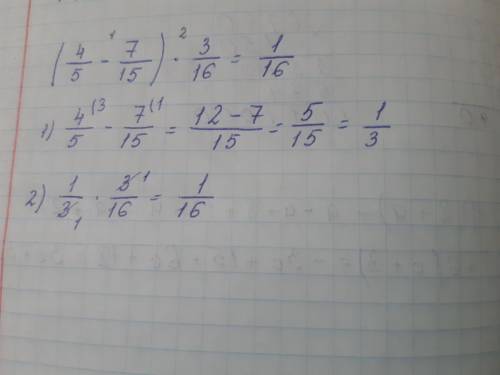 (4/5 -¹ 7/15) ·² 3/16 = 1/16
1) 4⁽³/5 - 7⁽¹/15 = 12-7/15 = 5/15 = 1/3
2) 1/3₁ · 3¹/16 = 1/16